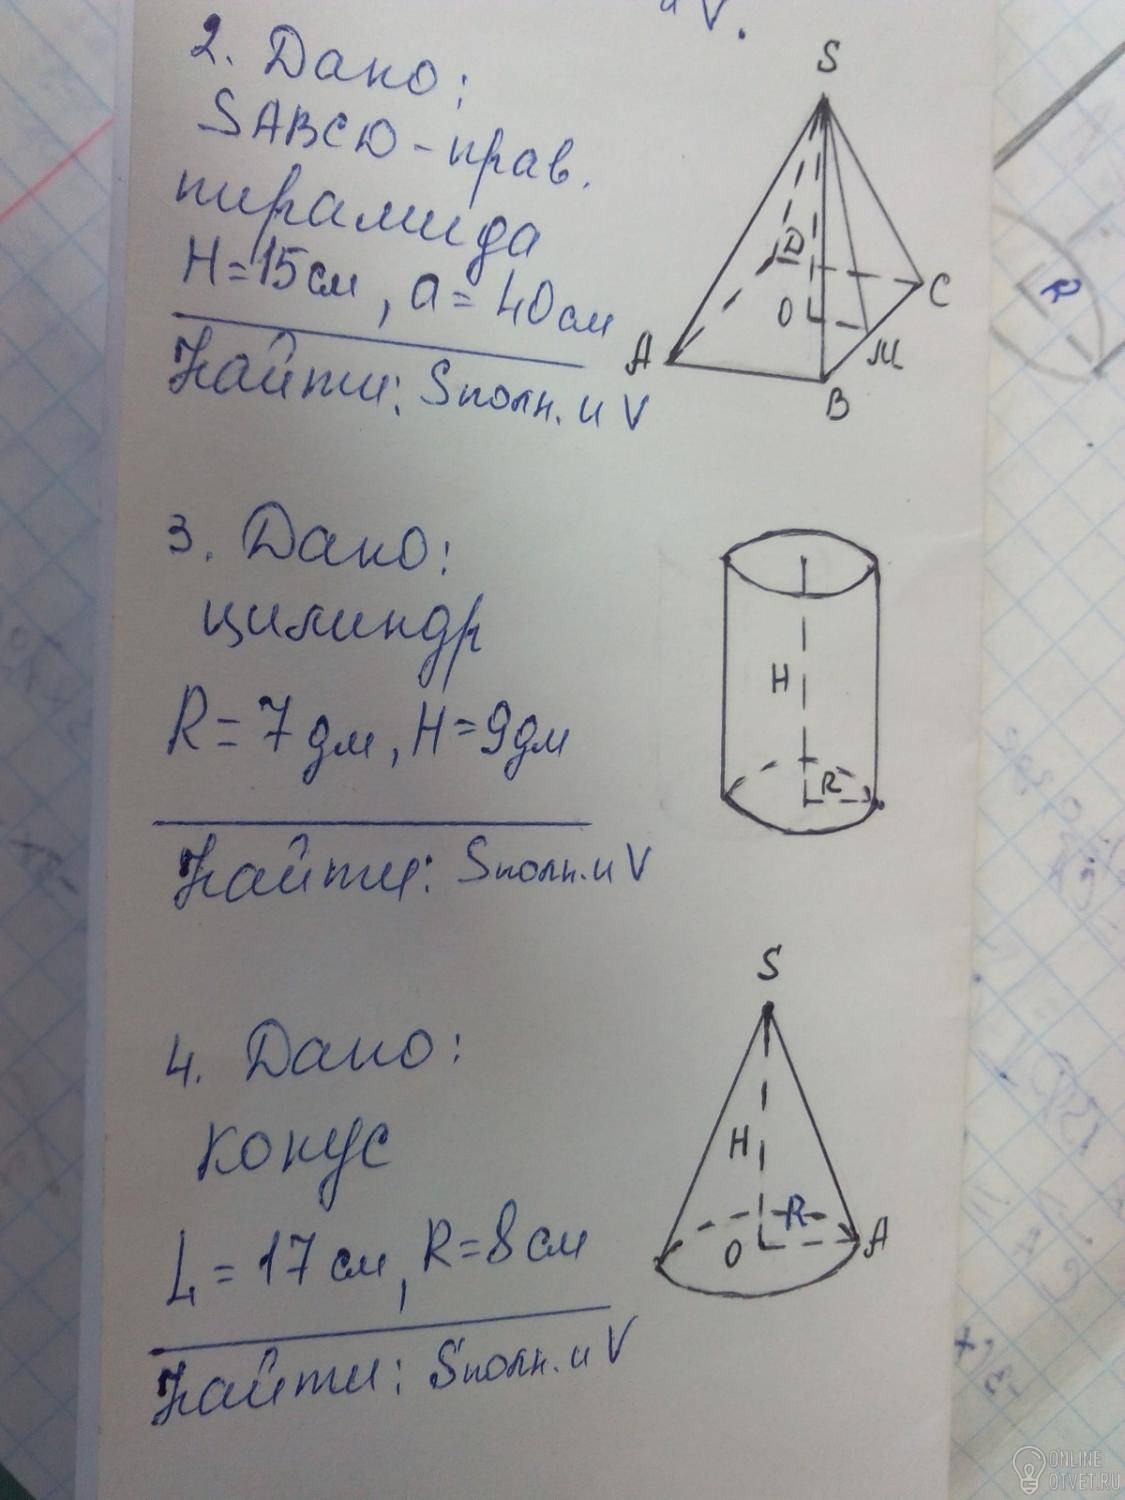 и V.
2. Дано:
SABCD - прав.
пирамида
H = 15 см, a = 40 см
Найти: Sполн. и V
S
D
C
O
M
A
B
3. Дано:
цилиндр
R = 7 дм, H = 9 дм
Найти: Sполн. и V
H
R
4. Дано:
конус
L = 17 см, R = 8 см
Найти: Sполн. и V
S
H
R
O
A
R
ONLINE
OTVET.RU